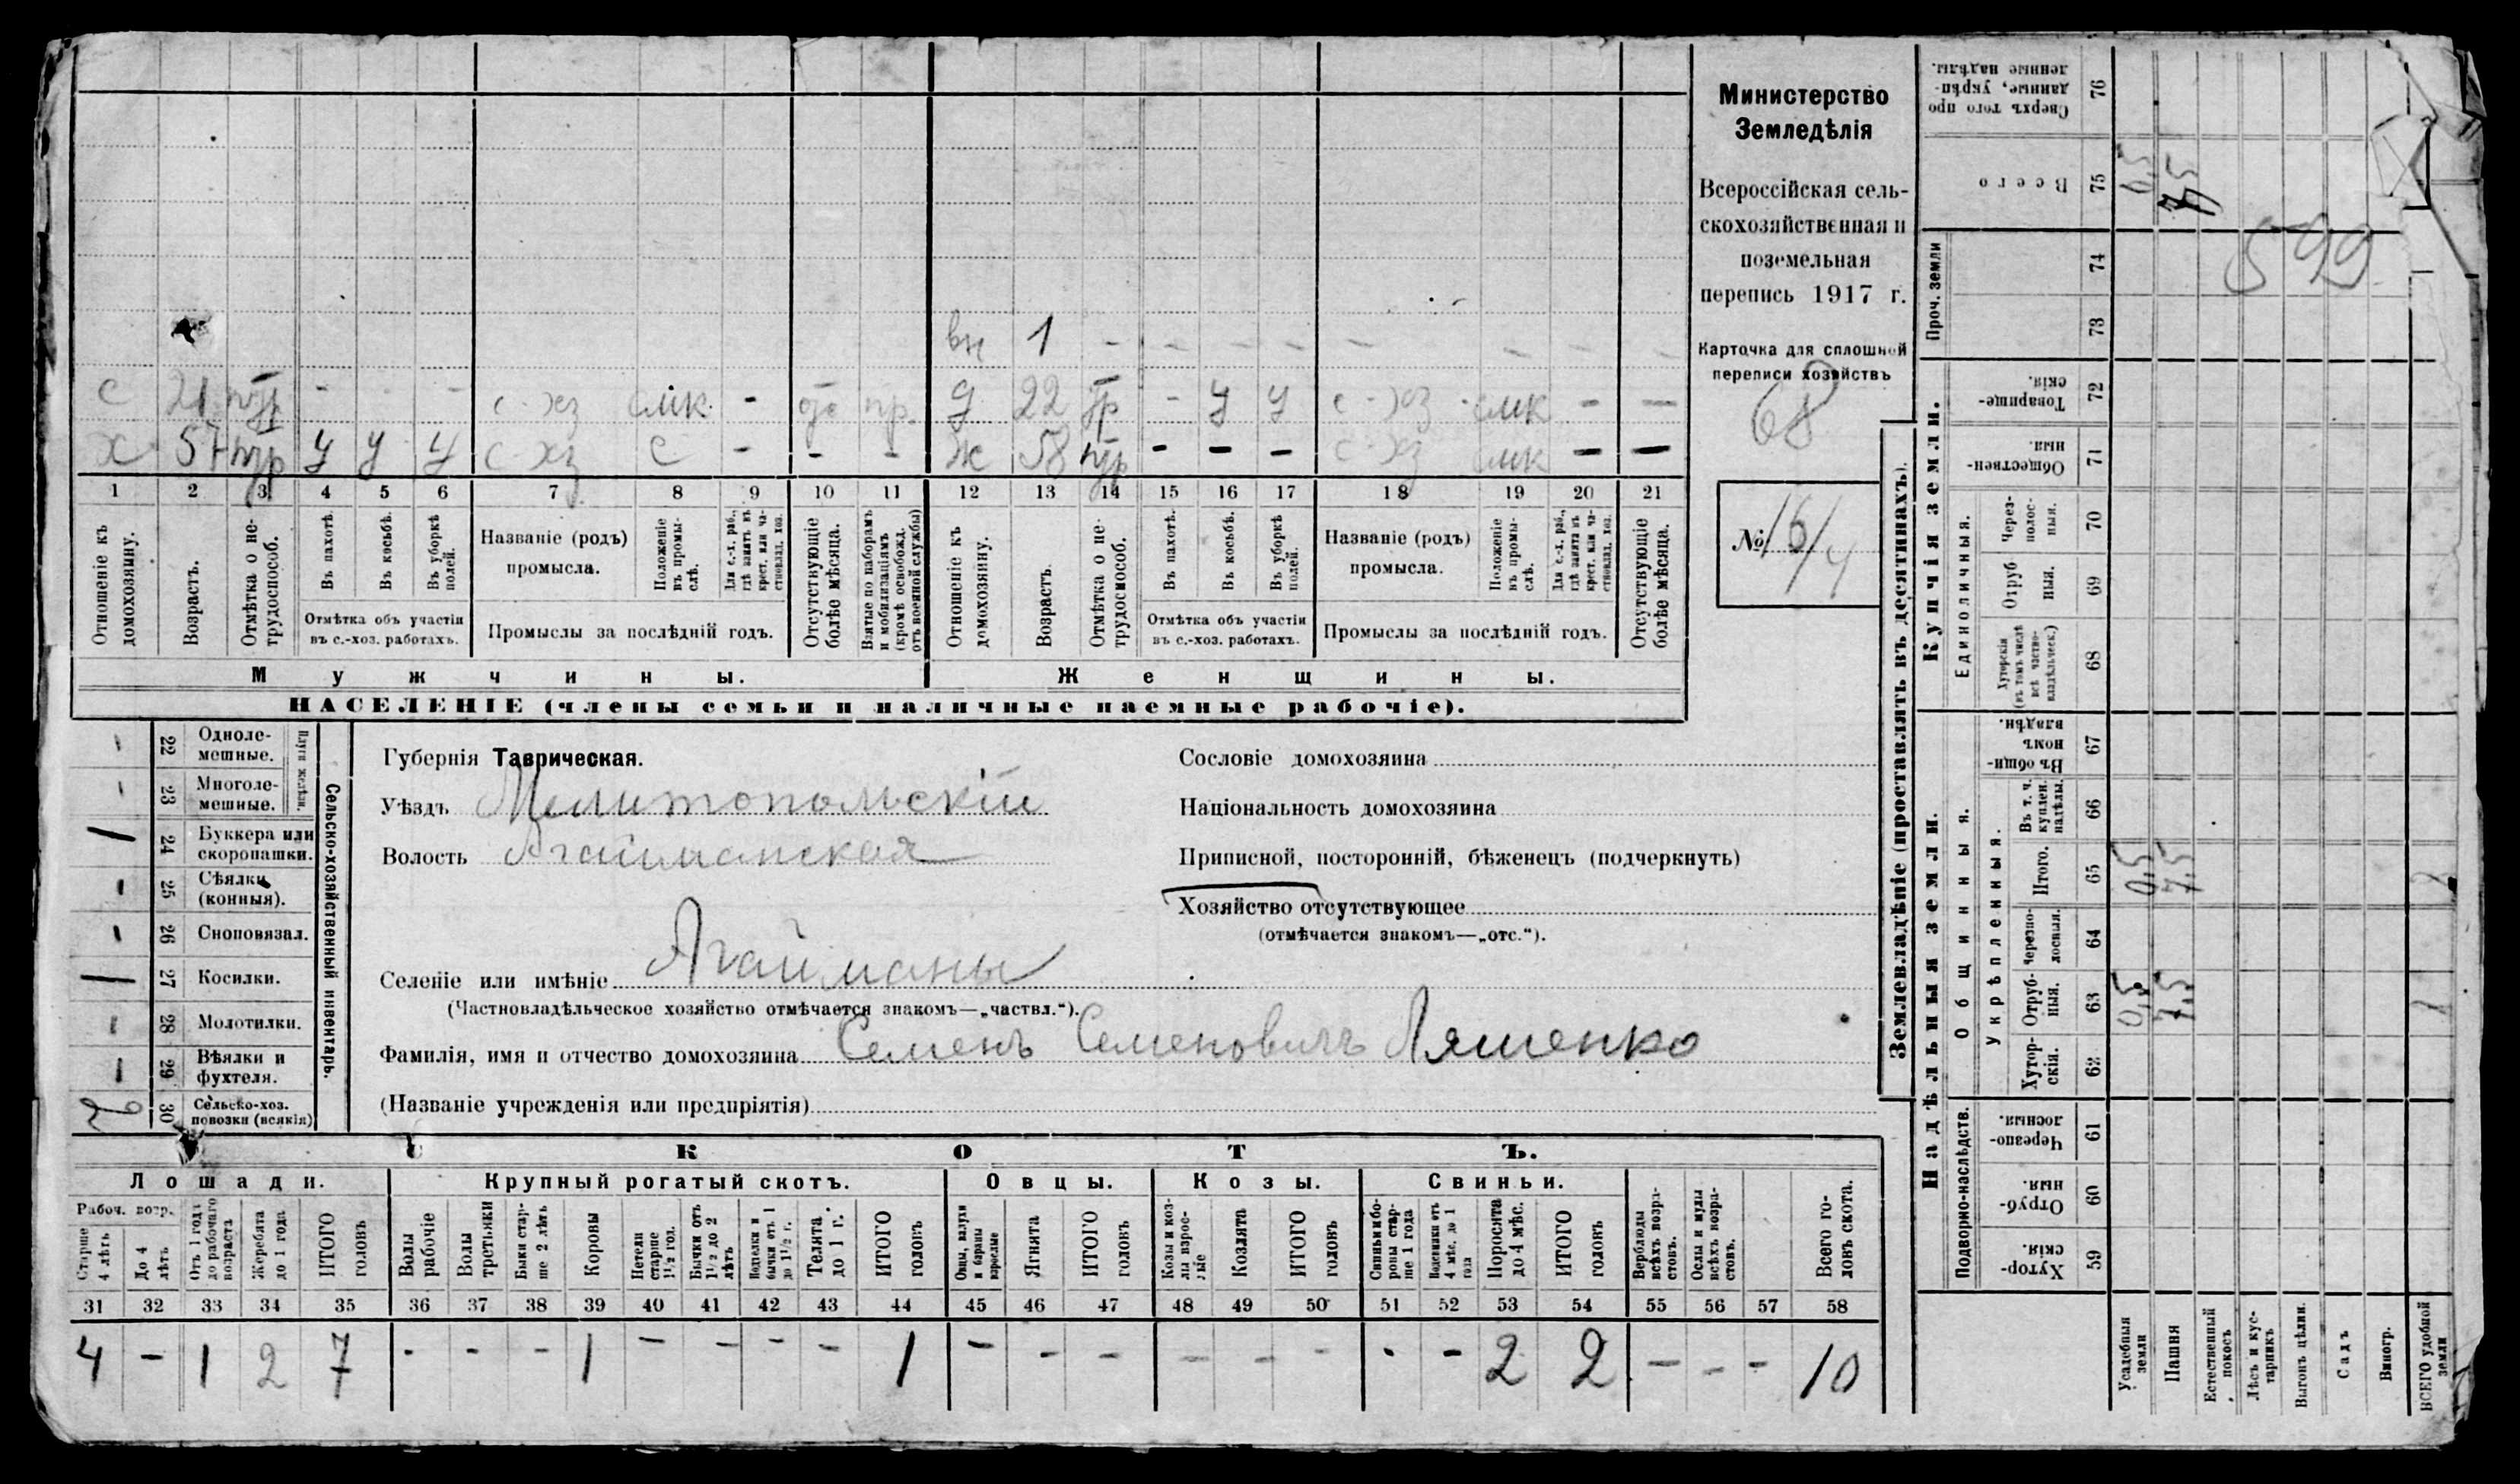 вн 1 - - - - - - - - -
с 21 - - - с-хз смк - пр. д 22 - у у с-хз смк - -
х 57 у у у с-хз с - - - ж 58 - - - с-хз смк - -
1 2 3 4 5 6 7 8 9 10 11 12 13 14 15 16 17 18 19 20 21
Отношеніе къ домохозяину.
Возрастъ.
Отмѣтка о нетрудоспособ.
Въ пахотѣ.
Въ косьбѣ.
Въ уборкѣ полей.
Отмѣтка объ участіи въ с.-хоз. работахъ.
Названіе (родъ) промысла.
Положеніе въ промыслѣ.
Для с.-х. раб., гдѣ занятъ въ крест. или частновлад. хоз.
Промыслы за послѣдній годъ.
Отсутствующіе болѣе мѣсяца.
Взятые по наборамъ и мобилизаціямъ (кромѣ освобожд. отъ военной службы)
Отношеніе къ домохозяину.
Возрастъ.
Отмѣтка о нетрудоспособ.
Въ пахотѣ.
Въ косьбѣ.
Въ уборкѣ полей.
Отмѣтка объ участіи въ с.-хоз. работахъ.
Названіе (родъ) промысла.
Положеніе въ промыслѣ.
Для с.-х. раб., гдѣ занята въ крест. или частновлад. хоз.
Промыслы за послѣдній годъ.
Отсутствующіе болѣе мѣсяца.
Мужчины. Женщины.
НАСЕЛЕНІЕ (члены семьи и наличные наемные рабочіе).
Министерство
Земледѣлія
Всероссійская сель-
скохозяйственная и
поземельная
перепись 1917 г.
Карточка для сплошной
переписи хозяйствъ
68
№ 16/4
- 22 Одноле-
мешные.
- 23 Многоле-
мешные.
Плуги желѣзн.
1 24 Буккера или
скоропашки.
- 25 Сѣялки
(конныя).
- 26 Сноповязал.
1 27 Косилки.
- 28 Молотилки.
- 29 Вѣялки и
фухтеля.
2 30 Сельско-хоз.
повозки (всякія)
Сельско-хозяйственный инвентарь.
Губернія Таврическая.
Уѣздъ Мелитопольскій
Волость Агайманская
Селеніе или имѣніе Агайманы
(Частновладѣльческое хозяйство отмѣчается знакомъ—„частвл.“).
Фамилія, имя и отчество домохозяина Семенъ Семеновичъ Ляшенко
(Названіе учрежденія или предпріятія)
Сословіе домохозяина
Національность домохозяина
Приписной, посторонній, бѣженецъ (подчеркнуть)
Хозяйство отсутствующее
(отмѣчается знакомъ—„отс.“).
СКОТЪ.
Лошади. Крупный рогатый скотъ. Овцы. Козы. Свиньи.
Рабоч. возр.
Старше 4 лѣтъ
До 4 лѣтъ
Отъ 1 года до рабочаго возраста
Жеребята до 1 года
ИТОГО головъ
Волы рабочіе
Волы третьяки
Быки старше 2 лѣтъ
Коровы
Нетели старше 1½ год.
Бычки отъ 1½ до 2 лѣтъ
Телята до 1 г.
ИТОГО головъ
Овцы, валухи и бараны взрослые
Ягнята
ИТОГО головъ
Козы и козлы взрослые
Козлята
ИТОГО головъ
Свиньи и боровы старше 1 года
Поросята до 4 мѣс.
ИТОГО головъ
Верблюды всѣхъ возрастовъ.
Ослы и мулы всѣхъ возрастовъ.
Всего головъ скота.
31 32 33 34 35 36 37 38 39 40 41 42 43 44 45 46 47 48 49 50 51 52 53 54 55 56 57 58
4 - 1 2 7 - - - 1 - - - - 1 - - - - - - - - 2 2 - - - 10
Землевладѣніе (проставлять въ десятинахъ).
Купчія земли.
Надѣльныя земли.
Сверхъ того проданные, укрѣпленные надѣлы. 76
Всего 75 0,5 7,5
Проч. земли 74 73
599
Товарищескія. 72
Общественныя 71
Единоличныя.
Черезполосныя. 70
Отрубныя. 69
Хуторскія (въ томъ числѣ всѣ частновладѣльческ.) 68
Общинныя.
Въ общинномъ владѣн. 67
Укрѣпленныя.
Въ т. ч. куплен. надѣлы. 66
Итого. 65 0,5 7,5
Черезполосныя. 64
Отрубныя. 63 0,5 7,5
Хуторскія. 62
Подворно-наслѣдств.
Черезполосныя. 61
Отрубныя. 60
Хуторскія. 59
Усадебныя земли
Пашня
Естественный покосъ
Лѣсъ и кустарникъ
Выгонъ цѣлин.
Садъ
Виногр.
ВСЕГО удобной земли